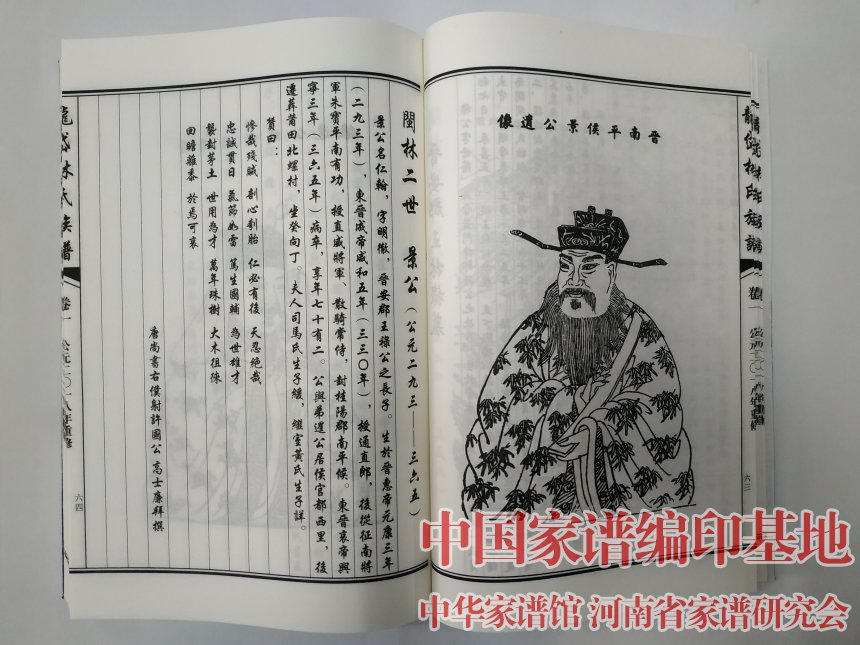 晉南平侯景公遺像
六三
閩林二世 景公（公元二九三——三六五）
景公名仁翰，字明徹，晉安郡王祿公之長子。生於晉惠帝元康三年
（二九三年），東晉成帝咸和五年（三三〇年），授通直郎，後從征南將
軍朱寶平南有功，授直威將軍、散騎常侍，封桂陽郡南平侯。東晉哀帝興
寧三年（三六五年）病卒，享年七十有二。公與弟暹公居侯官都西里，後
遷葬莆田北螺村，坐癸向丁。夫人司馬氏生子緩，繼室黃氏生子詳。
贊曰：
慘哉殘賊 剖心刳胎 仁必有後 天忍絕哉
忠誠貫日 氣節如雷 篤生國輔 為世雄才
製封茅土 世用為才 萬年珠樹 大木徂徠
回瞻離黍 於焉可哀
唐尚書右僕射許國公 高士廉拜撰
林氏族譜
卷一
公元二〇一八年重修
六四
中国家谱编印基地
中华家谱馆 河南省家谱研究会